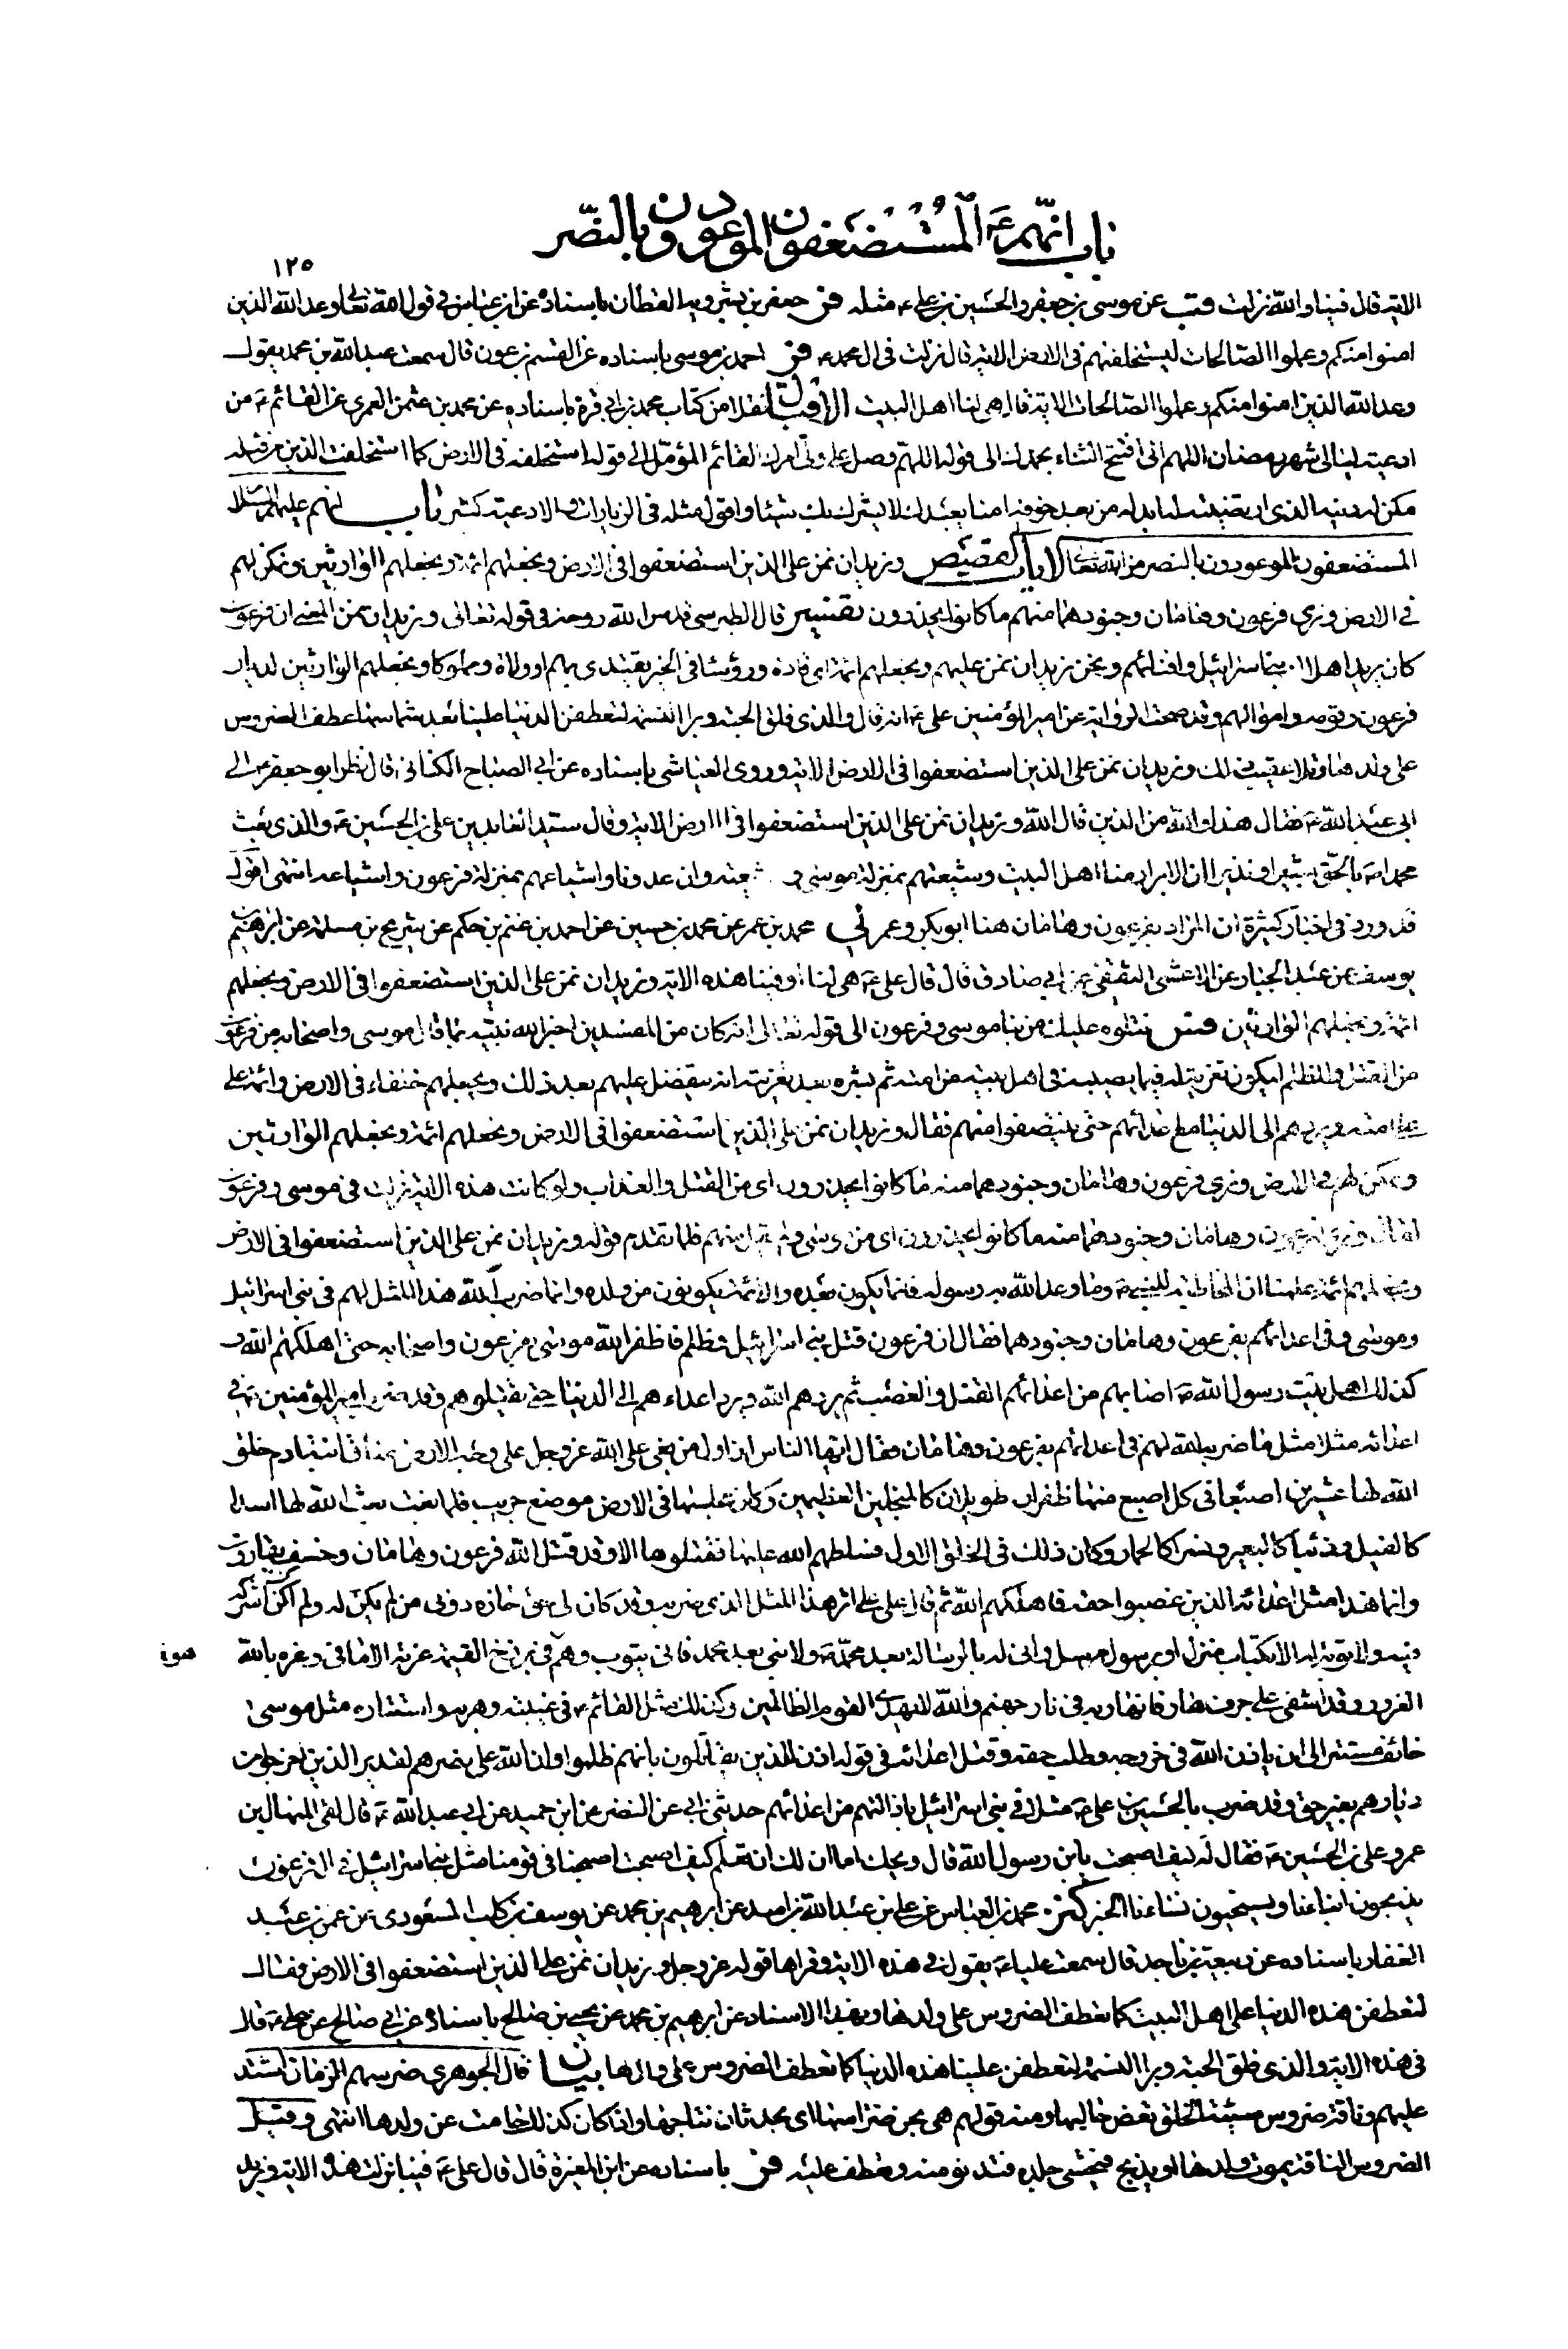 باب انهم ع المستضعفون الموعودون بالنصر
١٢٥
الاية قال فينا والله نزلت قب عن موسى بن جعفر والحسين بن علي ع مثله فر جعفر بن بشرويه القطان باسناده عن ابن عباس في قول الله تعالى وعد الله الذين
امنوا منكم وعملوا الصالحات ليستخلفنهم في الارض الاية قال نزلت في ال محمد ع فر احمد بن موسى باسناده عن القسم بن عون قال سمعت عبد الله بن محمد يقول
وعد الله الذين امنوا منكم وعملوا الصالحات الاية قال هي لنا اهل البيت الاقبال نقلا من كتاب محمد بن ابي قرة باسناده عن محمد بن عثمن العمري عن القائم ع من
ادعية ليالي شهر رمضان اللهم اني افتتح الثناء بحمدك الى قوله اللهم وصل على ولي امرك القائم المؤمل الى قوله استخلفه في الارض كما استخلفت الذين من قبله
مكن له دينه الذي ارتضيته له ابدله من بعد خوفه امنا يعبدك لا يشرك بك شيئا واقول مثله في الزيارات والادعية كثير باب انهم عليهم السلام
المستضعفون الموعودون بالنصر من الله تعالى الايات القصص ونريد ان نمن على الذين استضعفوا في الارض ونجعلهم ائمة ونجعلهم الوارثين ونمكن لهم
في الارض ونري فرعون وهامان وجنودهما منهم ما كانوا يحذرون تفسير قال الطبرسي قدس الله روحه في قوله تعالى ونريد ان نمن المعنى ان فرعون
كان يريد اهلاك بني اسرائيل وافنائهم ونحن نريد ان نمن عليهم ونجعلهم ائمة اي قادة ورؤساء في الخير يقتدى بهم او ولاة وملوكا ونجعلهم الوارثين لديار
فرعون وقومه واموالهم وقد صحت الرواية عن امير المؤمنين علي ع انه قال والذي فلق الحبة وبرا النسمة لتعطفن الدنيا علينا بعد شماسها عطف الضروس
على ولدها وتلا عقيب ذلك ونريد ان نمن على الذين استضعفوا في الارض الاية وروى العياشي باسناده عن ابي الصباح الكناني قال نظر ابو جعفر ع الى
ابي عبد الله ع فقال هذا والله من الذين قال الله ونريد ان نمن على الذين استضعفوا في الارض الاية وقال سيد العابدين علي بن الحسين ع والذي بعث
محمدا ص بالحق بشيرا ونذيرا ان الابرار منا اهل البيت وشيعتهم بمنزلة موسى و شيعته وان عدونا واشياعهم بمنزلة فرعون واشياعه انتهى اقول
قد ورد في اخبار كثيرة ان المراد بفرعون وهامان هنا ابو بكر وعمر لي محمد بن عمر عن محمد بن حسين عن احمد بن غنم بن حكم عن شريح بن مسلمة عن ابرهيم بن
يوسف عن عبد الجبار عن الاعشى الثقفي عن ابي صادق قال قال علي ع هي لنا او فينا هذه الاية ونريد ان نمن على الذين استضعفوا في الارض ونجعلهم
ائمة ونجعلهم الوارثين فس نتلوه عليك من نبا موسى وفرعون الى قوله تعالى انه كان من المفسدين اخبر الله نبيه بما قال موسى واصحابه من فرعون
من القتل والظلم ليكون تعزية له فيما يصيبه في اهل بيته من امته ثم بشره بعد تعزيته انه يتفضل عليهم بعد ذلك ويجعلهم خلفاء في الارض وائمة على
امته ويردهم الى الدنيا مع اعدائهم حتى ينتصفوا منهم فقال ونريد ان نمن على الذين استضعفوا في الارض ونجعلهم ائمة ونجعلهم الوارثين
ونمكن لهم في الارض ونري فرعون وهامان وجنودهما منهم ما كانوا يحذرون اي من القتل والعذاب ولو كانت هذه الاية نزلت في موسى وفرعون
لقال ونري فرعون وهامان وجنودهما منه ما كانوا يحذرون اي من موسى ولم يقل منهم فلما تقدم قوله ونريد ان نمن على الذين استضعفوا في الارض
ونجعلهم ائمة علمنا ان المخاطبة للنبي ص وما وعد الله به رسوله فانما يكون بعده والائمة يكونون من ولده وانما ضرب الله هذا المثل لهم في بني اسرائيل
وموسى وفي اعدائهم بفرعون وهامان وجنودهما فقال ان فرعون قتل بني اسرائيل وظلم فاظفر الله موسى بفرعون واصحابه حتى اهلكهم الله و
كذلك اهل بيت رسول الله ص اصابهم من اعدائهم القتل والغصب ثم يردهم الله ويرد اعداءهم الى الدنيا حتى يقتلوهم وقد ضرب امير المؤمنين ع في
اعدائه مثلا مثل ما ضرب الله لهم في اعدائهم بفرعون وهامان فقال ايها الناس ان اول من بغى على الله عز وجل على وجه الارض عناق ابنة ادم خلق
الله لها عشرين اصبعا في كل اصبع منها ظفران طويلان كالمنجلين العظيمين وكان مجلسها في الارض موضع جريب فلما بغت بعث الله لها اسدا
كالفيل وذئبا كالبعير ونسرا كالحمار وكان ذلك في الخلق الاول فسلطهم الله عليها فقتلوها الا وقد قتل الله فرعون وهامان وخسف بقارون
وانما هذا مثل اعدائه الذين غصبوا حقه فاهلكهم الله ثم قال علي على اثر هذا المثل الذي ضربه وقد كان لي حق حازه دوني من لم يكن له ولم اكن اشركه
فيه ولا توبة له الا بكتاب منزل او برسول مرسل وانى له بالرسالة بعد محمد ص ولا نبي بعد محمد فانى يتوب وهم في برزخ القيمة غرته الاماني وغره بالله
الغرور وقد اشفى على جرف هار فانهار به في نار جهنم والله لا يهدي القوم الظالمين وكذلك مثل القائم ع في غيبته وهربه واستتاره مثل موسى
خائف مستتر الى ان ياذن الله في خروجه وطلب حقه وقتل اعدائه في قوله اذن للذين يقاتلون بانهم ظلموا وان الله على نصرهم لقدير الذين اخرجوا من
ديارهم بغير حق وقد ضرب بالحسين بن علي ع مثلا في بني اسرائيل باذالتهم من اعدائهم حدثني ابي عن النضر عن ابن حميد عن ابي عبد الله ع قال لقي المنهال بن
عمرو علي بن الحسين ع فقال له كيف اصبحت يابن رسول الله قال ويحك اما ان لك ان تعلم كيف اصبحت اصبحنا في قومنا مثل بني اسرائيل في ال فرعون
يذبحون ابناءنا ويستحيون نساءنا الخبر كنز محمد بن العباس عن علي بن عبد الله بن اسد عن ابرهيم بن محمد عن يوسف بن كليب المسعودي عن عمر بن عبد
الغفار باسناده عن ربيعة بن ناجد قال سمعت عليا ع يقول في هذه الاية وقراها قوله عز وجل ونريد ان نمن على الذين استضعفوا في الارض وقال
لتعطفن هذه الدنيا على اهل البيت كما تعطف الضروس على ولدها وبهذا الاسناد عن ابرهيم بن محمد عن يحيى بن صالح باسناده عن ابي صالح عن علي ع قال
في هذه الاية والذي فلق الحبة وبرا النسمة لتعطفن علينا هذه الدنيا كما تعطف الضروس على ولدها بيان قال الجوهري ضرسهم الزمان اشتد
عليهم وناقة ضروس سيئة الخلق تعض حالبها ومنه قولهم هي بجن ضراسها اي بحدثان نتاجها واذا كان كذلك حامت عن ولدها انتهى وقيل
الضروس الناقة يموت ولدها او يذبح فيحشى جلده فتدنو منه وتعطف عليه فر باسناده عن ابن المغيرة قال قال علي ع فينا نزلت هذه الاية ونريد